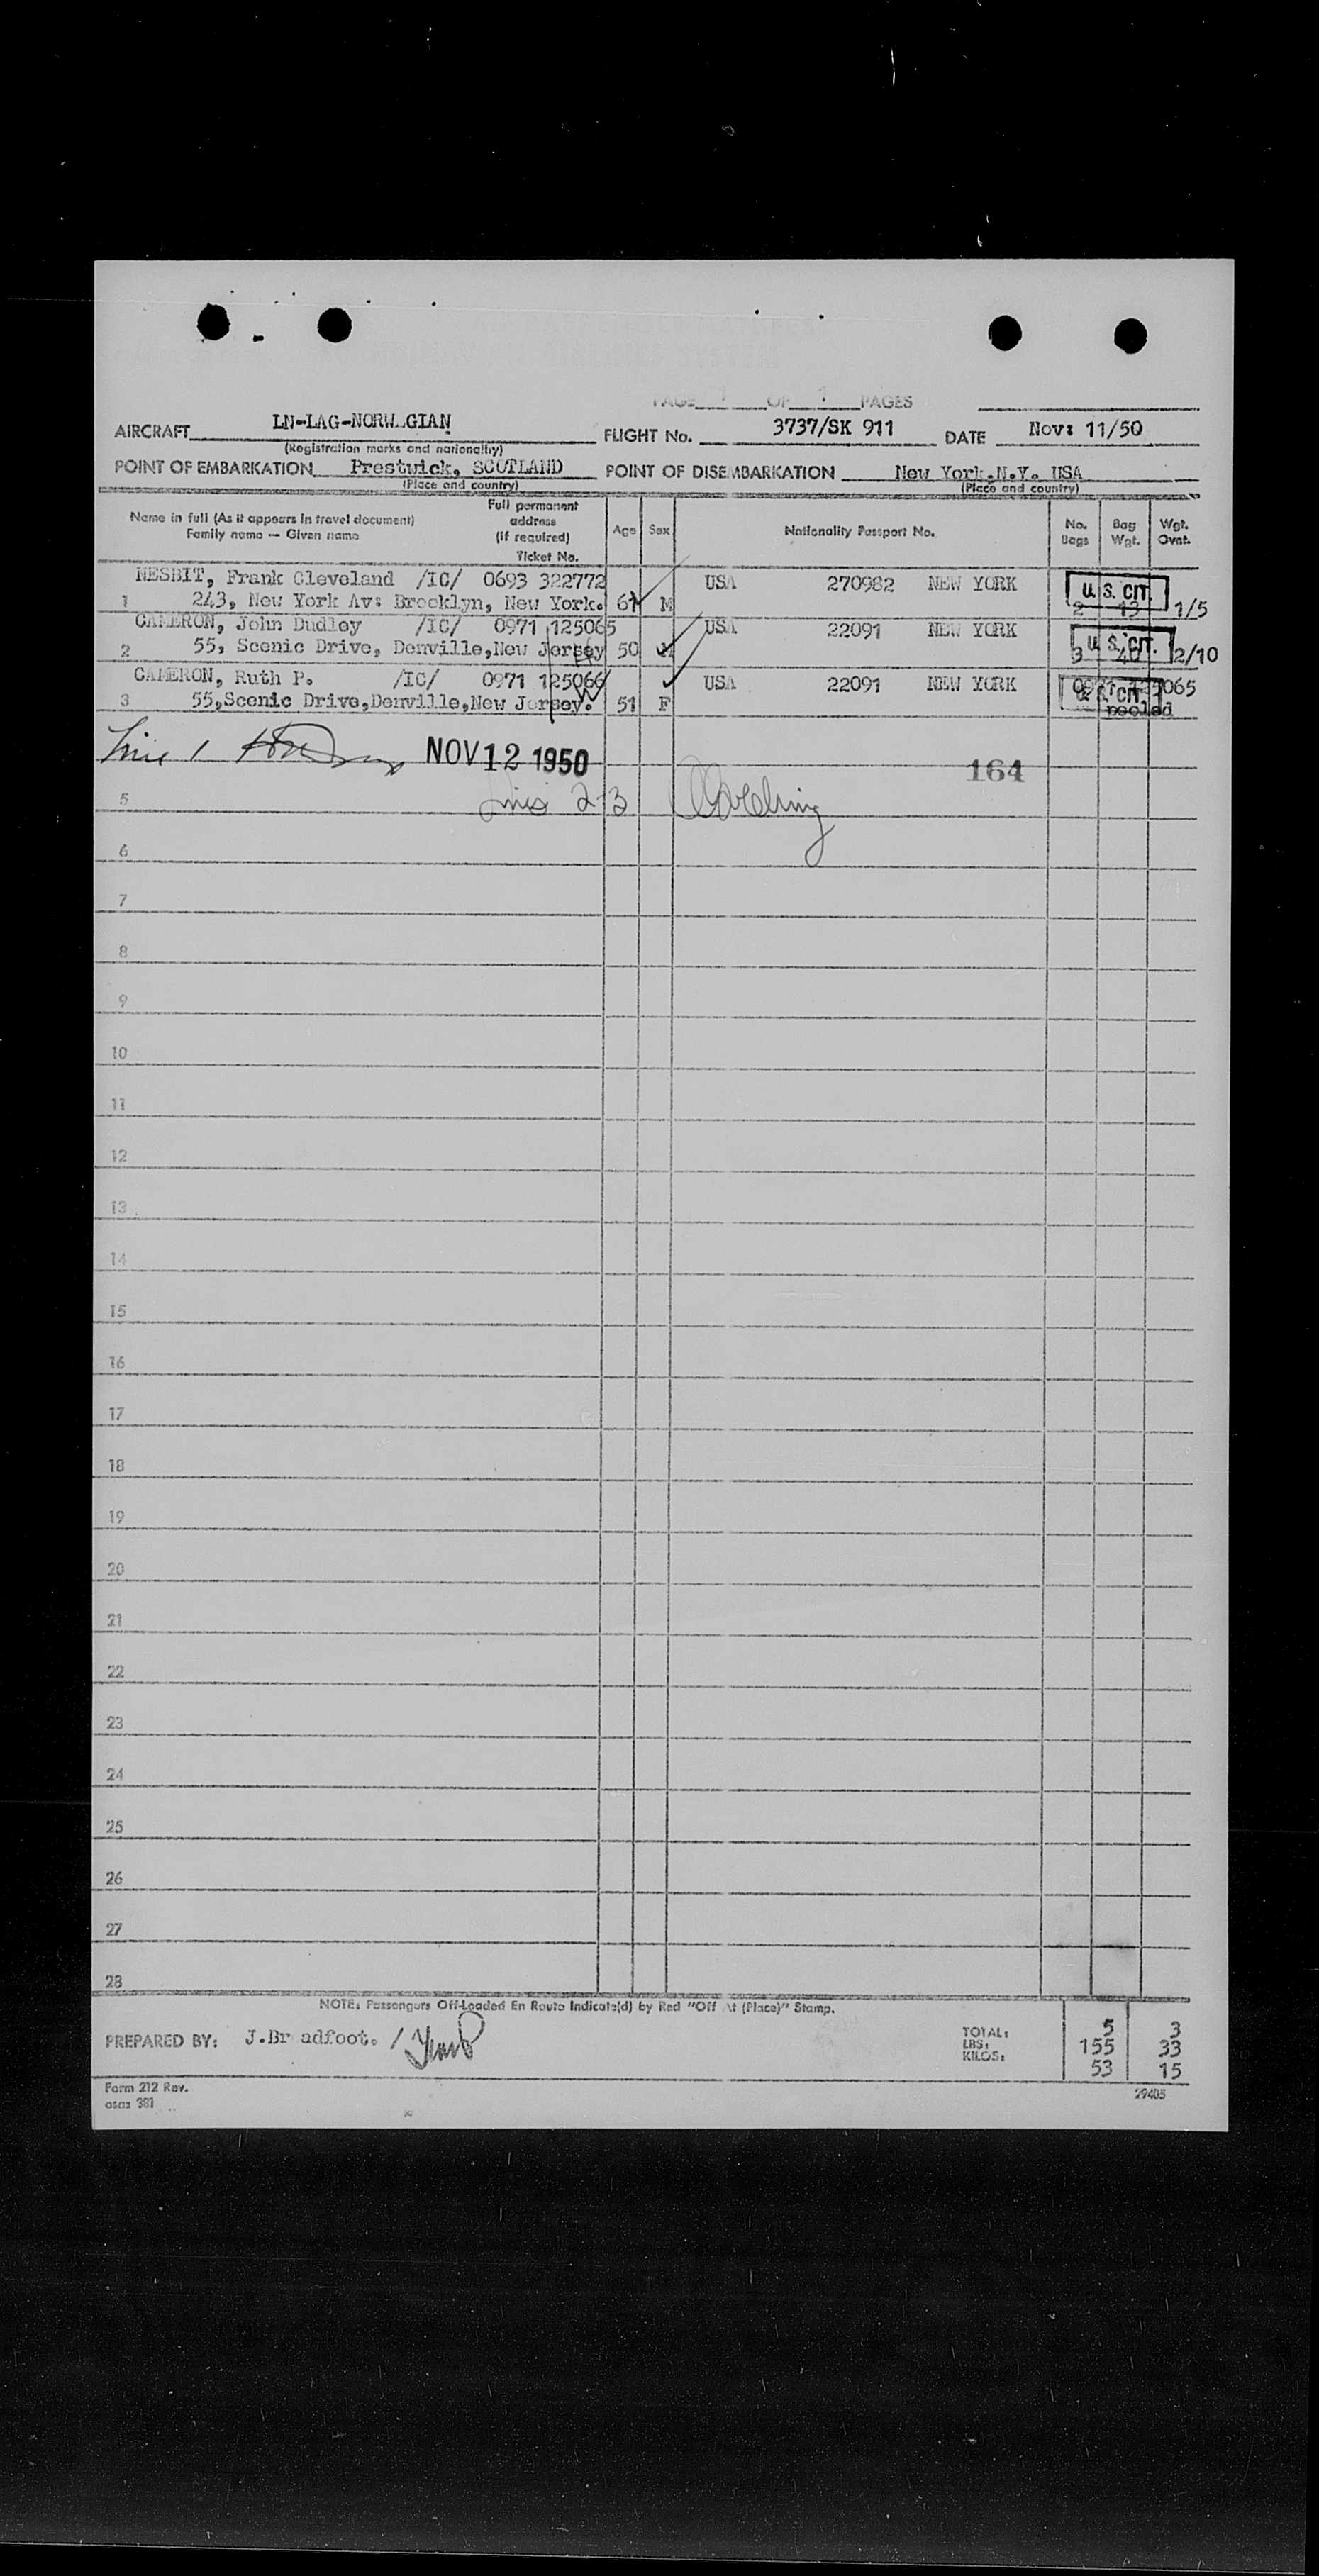 PAGE 1 OF 1 PAGES
AIRCRAFT LN-LAG-NORW.GIAN FLIGHT No. 3737/SK 911 DATE Nov: 11/50
(Registration marks and nationality)
POINT OF EMBARKATION Prestwick, SCOTLAND POINT OF DISEMBARKATION New York.N.Y. USA
(Place and country) (Place and country)
Name in full (As it appears in travel document) Family name — Given name Full permanent address (if required) Ticket No. Age Sex Nationality Passport No. No. Bags Bag Wgt. Wgt. Ovnt.
NESBIT, Frank Cleveland /IC/ 0693 322772 USA 270982 NEW YORK U.S. CIT.
1 243, New York Av: Brooklyn, New York. 61 M 2 13 1/5
CAMERON, John Dudley /IC/ 0971 125065 USA 22091 NEW YORK U.S. CIT.
2 55, Scenic Drive, Denville,New Jersey 50 M 3 40 2/10
CAMERON, Ruth P. /IC/ 0971 125066 USA 22091 NEW YORK 0971 125065 U.S. CIT.
3 55,Scenic Drive,Denville,New Jersey. 51 F pooled
Line 1 NOV 12 1950 164
5 Lines 2-3
6
7
8
9
10
11
12
13
14
15
16
17
18
19
20
21
22
23
24
25
26
27
28
NOTE: Passengers Off-Loaded En Route Indicate(d) by Red "Off At (Place)" Stamp.
PREPARED BY: J.Br adfoot. /
TOTAL: 5 3
LBS: 155 33
KILOS: 53 15
Form 212 Rev. 29405
osaz 381